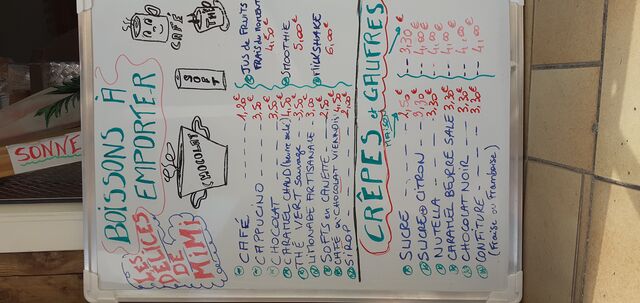 LES
DÉLICES
DE
MIMI
BOISSONS À
EMPORTER
CHOCOLAT
SOFT
CAFÉ
THÉ
SONNE
CAFÉ
CAPPUCINO --- 3,50€
CHOCOLAT --- 3,50€
CARAMEL CHAUD (beurre salé) 4,50€
THÉ VERT sauvage -- 3,50€
LIMONADE ARTISANALE 3,00€
SOFTS EN CANETTE
CAFÉ OU CHOCOLAT VIENNOIS 4,50
SIROP --- 2,00€
JUS DE FRUITS
FRAIS DU MOMENT
4,50€
SMOOTHIE
5,00€
MILKSHAKE
6,00€
CRÊPES et GAUFRES
MAISON
SUCRE ---- 2,50€ --- 3,30€
SUCRE CITRON -- 3,30€ -- 4,00€
NUTELLA --- 3,30€ -- 4,00€
CARAMEL BEURRE SALÉ 3,30€ -- 4,00€
CHOCOLAT NOIR -- 3,30€ -- 4,00€
CONFITURE -- 3,30€ -- 4,00€
(Fraise ou Framboise)